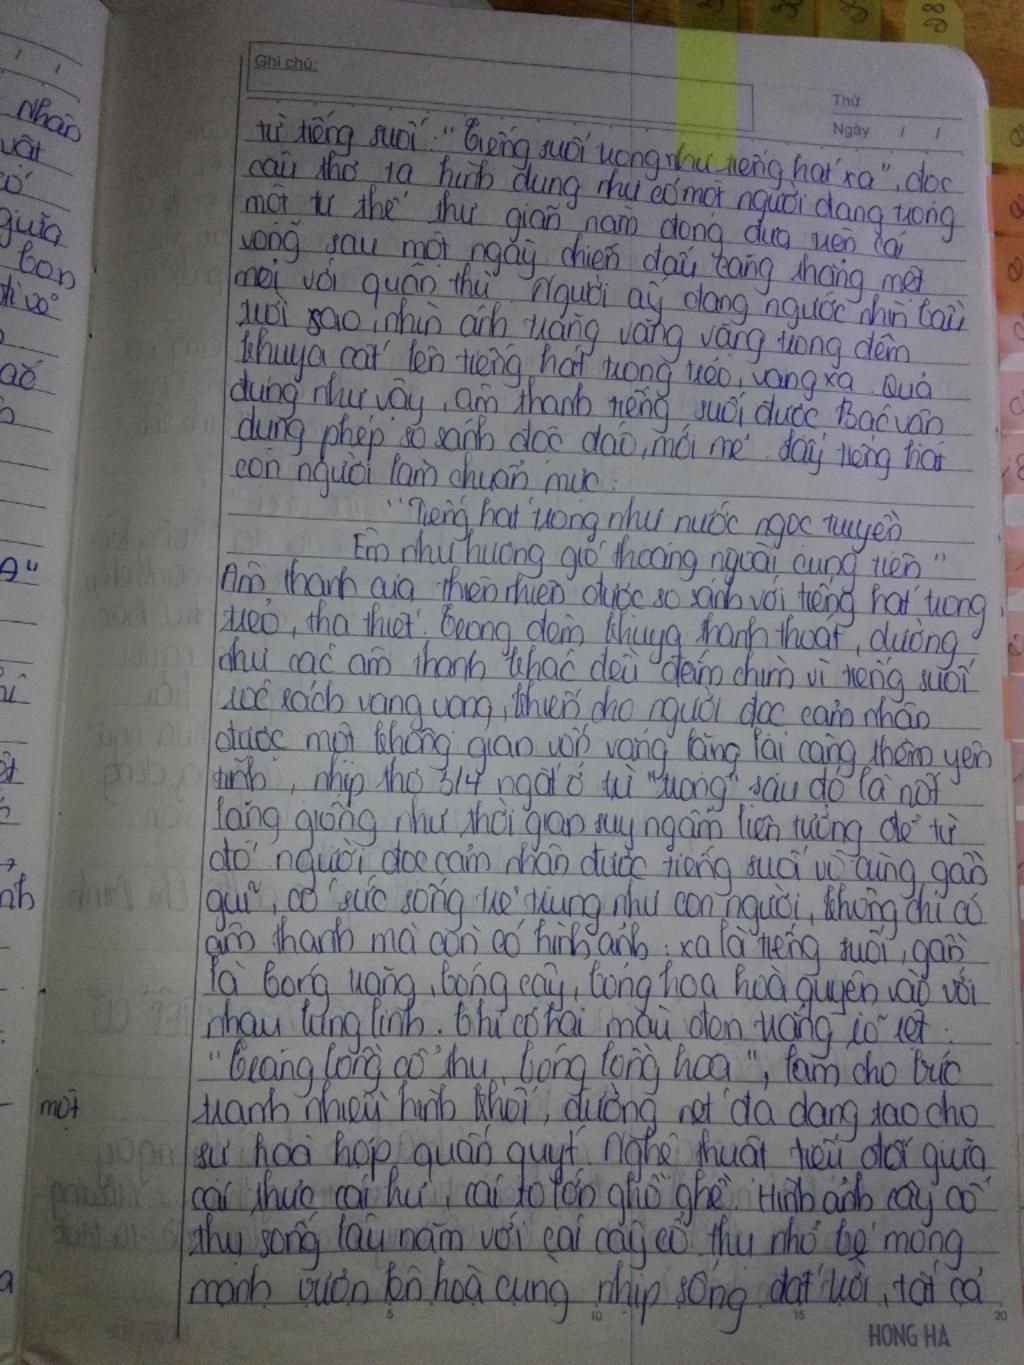 Ghi chú:
Thứ
Ngày / /
từ tiếng suối: "Tiếng suối trong như tiếng hát xa", đọc
câu thơ ta hình dung như có một người đang trong
một tư thế thư giãn nằm đong đưa trên cái
võng sau một ngày chiến đấu căng thẳng mệt
mỏi với quân thù. Người ấy đang ngước nhìn bầu
trời sao, nhìn ánh trăng vằng vặng trong đêm
khuya cất lên tiếng hát trong trẻo, vang xa. Quả
đúng như vậy, âm thanh tiếng suối được Bác vận
dụng phép so sánh độc đáo, mới mẻ. đấy tiếng hát
con người làm chuẩn mực:
"Tiếng hát trong như nước ngọc tuyền
Em như hương gió thoảng ngoài cung tiên"
Âm thanh của thiên nhiên được so sánh với tiếng hát trong
trẻo, tha thiết. Trong đêm khuya thanh thoát, dường
như các âm thanh khác đều đắm chìm vì tiếng suối
róc rách vang vọng, khiến cho người đọc cảm nhận
được một không gian vốn vắng lặng lại càng thêm yên
tĩnh, nhịp thơ 3/4 ngắt ở từ "trong" sau đó là nốt
lặng giống như thời gian suy ngẫm liên tưởng để từ
đó người đọc cảm nhận được tiếng suối vô cùng gần
gũi, có sức sống trẻ trung như con người, không chỉ có
âm thanh mà còn có hình ảnh: xa là tiếng suối, gần
là bóng trăng, bóng cây, bóng hoa hoà quyện vào với
nhau lung linh. Chỉ có hai màu đen trắng rõ rệt:
"Trăng lồng cổ thụ, bóng lồng hoa", làm cho bức
một
tranh nhiều hình khối, đường nét đa dạng tạo cho
sự hoà hợp quấn quýt. Nghệ thuật tiểu đối giữa
cái thực cái hư, cái to lớn ghồ ghề. Hình ảnh cây cổ
thụ sống lâu năm với cái cây cổ thụ nhỏ bé mỏng
mạnh vươn lên hoà cùng nhịp sống đất trời, tất cả
5 10 15 20
HONG HA